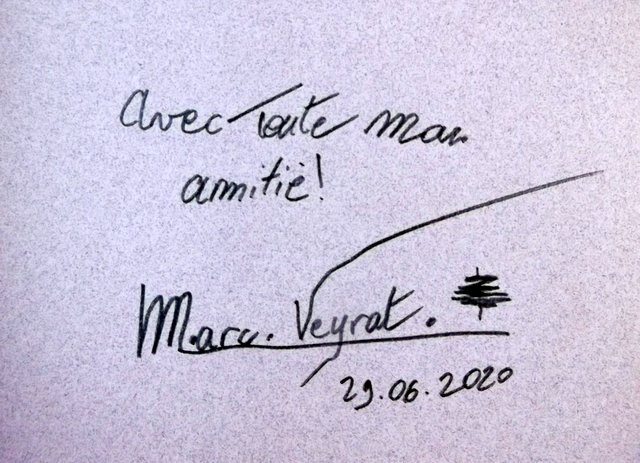 Avec Toute mon
amitié!
Marc. Veyrat.
29.06.2020